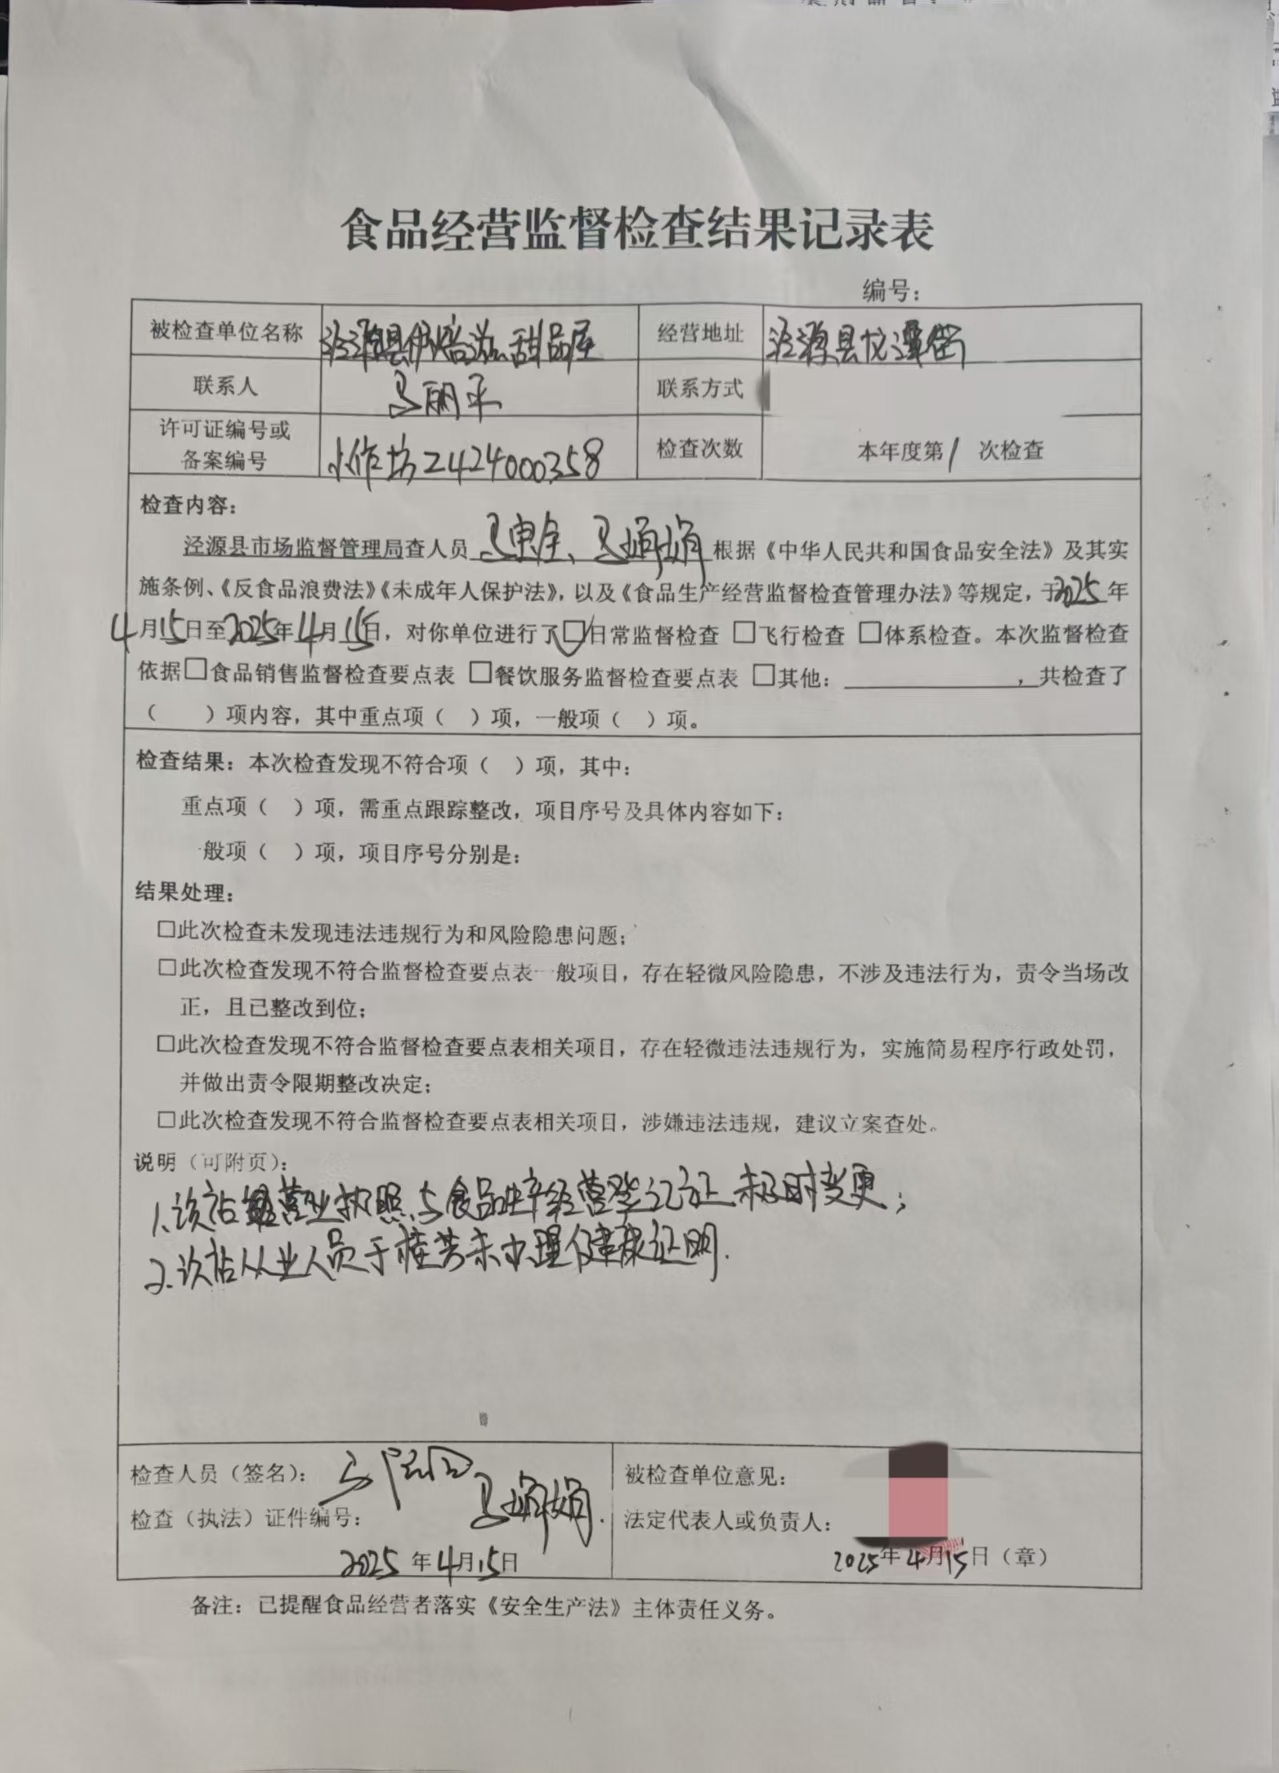 食品经营监督检查结果记录表
编号：
被检查单位名称 泾源县伊焙滋甜品屋 经营地址 泾源县龙潭街
联系人 马丽平 联系方式
许可证编号或
备案编号 小作坊2424000358 检查次数 本年度第1次检查
检查内容：
泾源县市场监督管理局查人员 马 、马娟娟 根据《中华人民共和国食品安全法》及其实
施条例、《反食品浪费法》《未成年人保护法》，以及《食品生产经营监督检查管理办法》等规定，于2025年
4月15日至2025年4月15日，对你单位进行了☑日常监督检查 □飞行检查 □体系检查。本次监督检查
依据□食品销售监督检查要点表 □餐饮服务监督检查要点表 □其他：，共检查了
（ ）项内容，其中重点项（ ）项，一般项（ ）项。
检查结果：本次检查发现不符合项（ ）项，其中：
重点项（ ）项，需重点跟踪整改，项目序号及具体内容如下：
一般项（ ）项，项目序号分别是：
结果处理：
□此次检查未发现违法违规行为和风险隐患问题；
□此次检查发现不符合监督检查要点表一般项目，存在轻微风险隐患，不涉及违法行为，责令当场改
正，且已整改到位；
□此次检查发现不符合监督检查要点表相关项目，存在轻微违法违规行为，实施简易程序行政处罚，
并做出责令限期整改决定；
□此次检查发现不符合监督检查要点表相关项目，涉嫌违法违规，建议立案查处。
说明（可附页）：
1.该店营业执照与食品生产经营登记证未及时变更；
2.该店从业人员于桂芳未办理健康证明.
检查人员（签名）： 马娟娟. 被检查单位意见：
检查（执法）证件编号： 法定代表人或负责人：
2025年4月15日 2025年4月15日（章）
备注：已提醒食品经营者落实《安全生产法》主体责任义务。